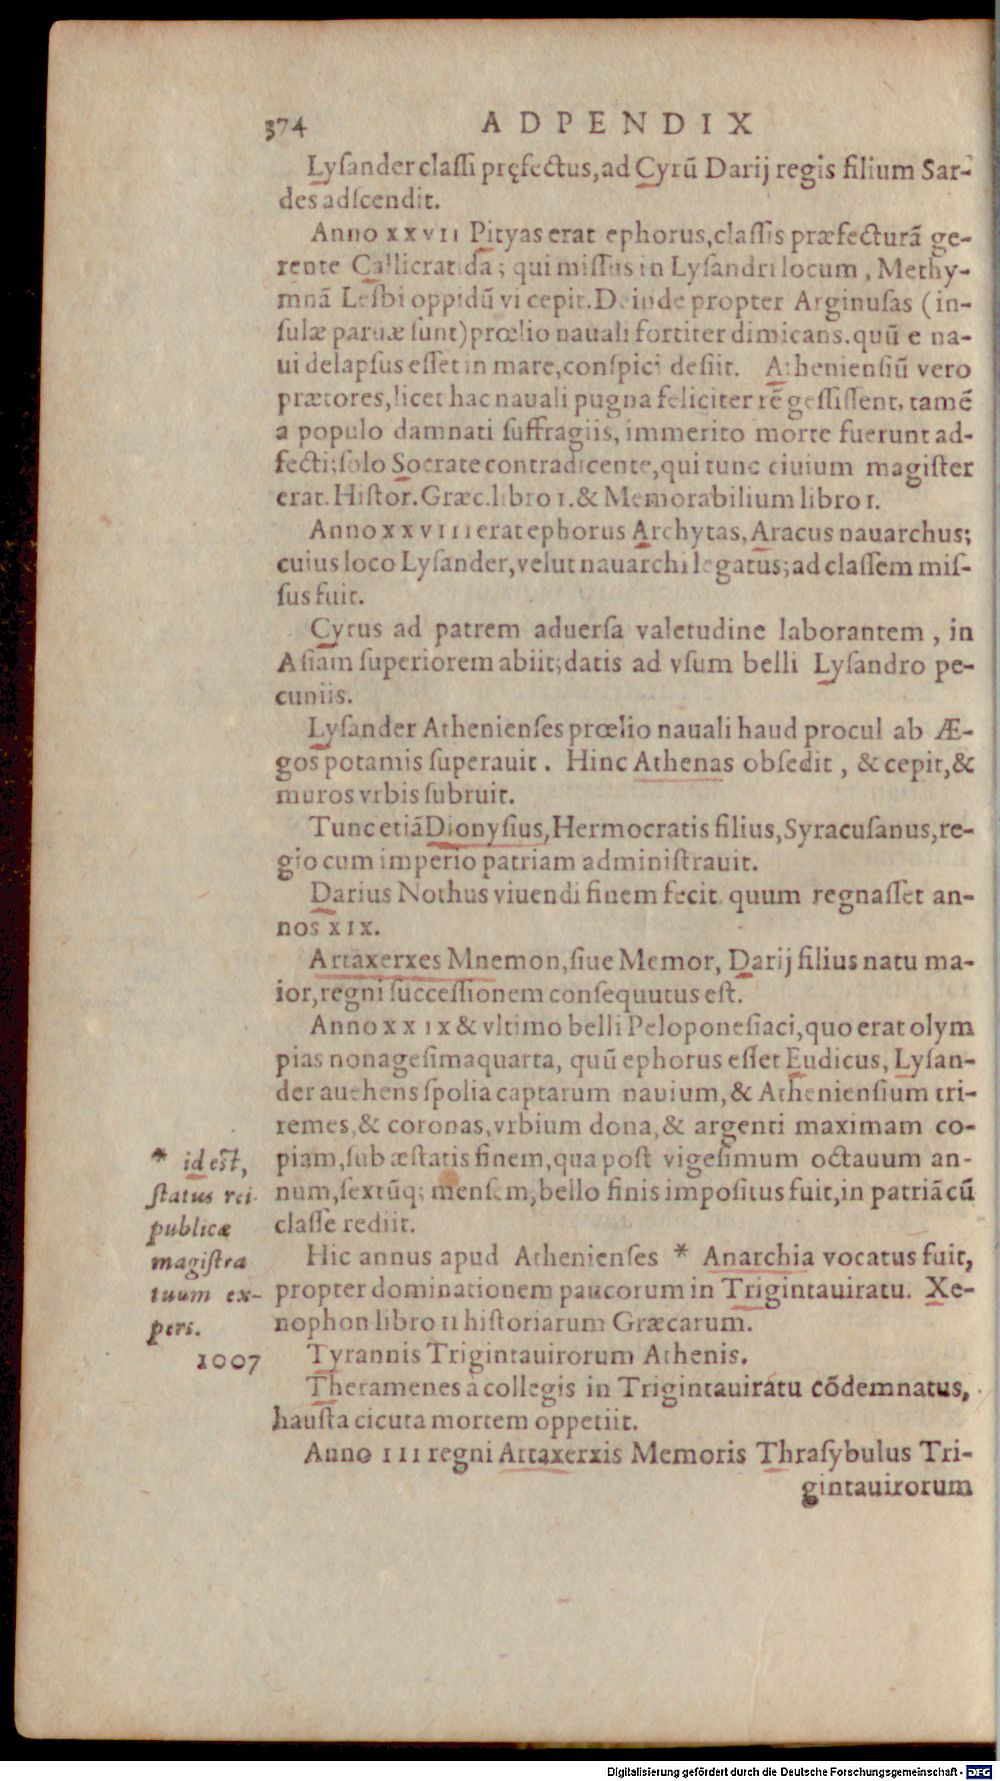 374 ADPENDIX
Lyſander claſſi pręfectus, ad Cyrū Darij regis filium Sar-
des adſcendit.
Anno XXVII Pityas erat ephorus, claſſis præfecturā ge-
rente Callicratida; qui miſſus in Lyſandri locum, Methy-
mnā Leſbi oppidū vi cepit. Deinde propter Arginuſas (in-
ſulæ paruæ ſunt) prœlio nauali fortiter dimicans. quū e na-
ui delapſus eſſet in mare, conſpici deſiit. Athenienſiū vero
prætores, licet hac nauali pugna feliciter rē geſſiſſent, tamē
a populo damnati ſuffragiis, immerito morte fuerunt ad-
fecti; ſolo Socrate contradicente, qui tunc ciuium magiſter
erat. Hiſtor. Græc. libro I. & Memorabilium libro I.
Anno XXVIII erat ephorus Archytas, Aracus nauarchus;
cuius loco Lyſander, velut nauarchi legatus; ad claſſem miſ-
ſus fuit.
Cyrus ad patrem aduerſa valetudine laborantem, in
Aſiam ſuperiorem abiit; datis ad vſum belli Lyſandro pe-
cuniis.
Lyſander Athenienſes prœlio nauali haud procul ab Æ-
gos potamis ſuperauit. Hinc Athenas obſedit, & cepit, &
muros vrbis ſubruit.
Tunc etiā Dionyſius, Hermocratis filius, Syracuſanus, re-
gio cum imperio patriam adminiſtrauit.
Darius Nothus viuendi finem fecit quum regnaſſet an-
nos XIX.
Artaxerxes Mnemon, ſiue Memor, Darij filius natu ma-
ior, regni ſucceſſionem conſequutus eſt.
Anno XXIX & vltimo belli Peloponeſiaci, quo erat olym
pias nonageſimaquarta, quū ephorus eſſet Eudicus, Lyſan-
der auehens ſpolia captarum nauium, & Athenienſium tri-
remes, & coronas, vrbium dona, & argenti maximam co-
piam, ſub æſtatis finem, qua poſt vigeſimum octauum an-
num, ſextūq; menſem, bello finis impoſitus fuit, in patriā cū
claſſe rediit.
Hic annus apud Athenienſes * Anarchia vocatus fuit,
propter dominationem paucorum in Trigintauiratu. Xe-
nophon libro II hiſtoriarum Græcarum.
* id eſt,
ſtatus rei
publicæ
magiſtra
tuum ex-
pers.
1007 Tyrannis Trigintauirorum Athenis.
Theramenes à collegis in Trigintauiratu cōdemnatus,
hauſta cicuta mortem oppetiit.
Anno III regni Artaxerxis Memoris Thraſybulus Tri-
gintauirorum
Digitalisierung gefördert durch die Deutsche Forschungsgemeinschaft - DFG